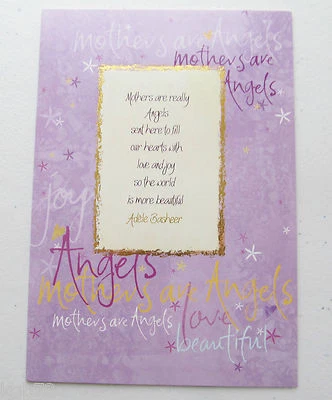 mothers are Angels
mothers are
Angels
Mothers are really
Angels
sent here to fill
our hearts with
love and joy
so the world
is more beautiful
Adele Basheer
joy
Angels
mothers are Angels
mothers are Angels
love
beautiful